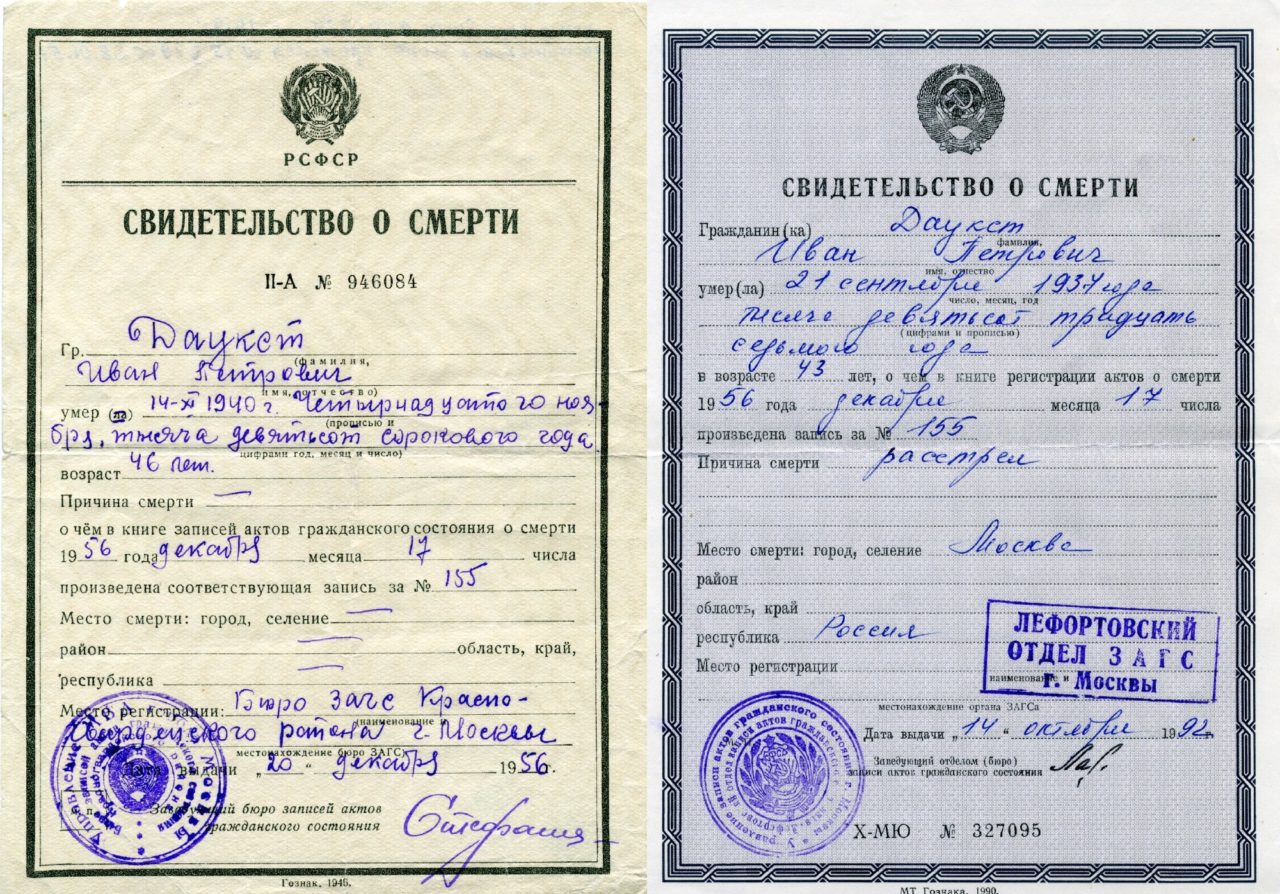 РСФСР
СВИДЕТЕЛЬСТВО О СМЕРТИ
II-А № 946084
Гр. Даукст
(фамилия,
Иван Петрович
имя, отчество)
умер (ла) 14-XI 1940 г. Четырнадцатого ноя-
(прописью и
бря, тысяча девятьсот сорокового года
цифрами год, месяц и число)
возраст 46 лет.
Причина смерти —
о чём в книге записей актов гражданского состояния о смерти
1956 года декабря месяца 17 числа
произведена соответствующая запись за № 155
Место смерти: город, селение —
район — область, край,
республика —
Место регистрации: Бюро Загс Красно-
(наименование и
гвардейского района г. Москвы
местонахождение бюро ЗАГС)
Дата выдачи „20“ декабря 1956г.
Заведующий бюро записей актов
гражданского состояния
Гознак. 1946.
СВИДЕТЕЛЬСТВО О СМЕРТИ
Гражданин (ка) Даукст
фамилия,
Иван Петрович
имя, отчество
умер (ла) 21 сентября 1937 года
число, месяц, год
тысяча девятьсот тридцать
(цифрами и прописью)
седьмого года
в возрасте 43 лет, о чем в книге регистрации актов о смерти
1956 года декабря месяца 17 числа
произведена запись за № 155
Причина смерти расстрел
Место смерти: город, селение Москва
район
область, край
республика Россия
ЛЕФОРТОВСКИЙ
ОТДЕЛ ЗАГС
Г. МОСКВЫ
Место регистрации
наименование и
местонахождение органа ЗАГСа
Дата выдачи „14“ октября 1992 г.
Заведующий отделом (бюро)
записи актов гражданского состояния
X-МЮ № 327095
МТ Гознака. 1990.